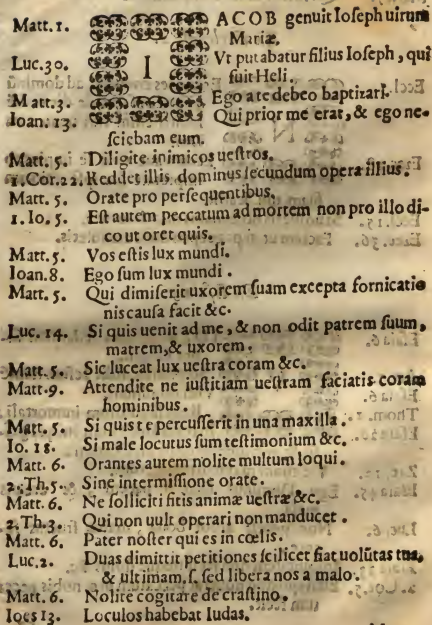 Matt. 1. IACOB genuit Ioseph uirum
Mariæ.
Luc. 30. Vt putabatur filius Ioseph, qui
fuit Heli.
Matt. 3. Ego a te debeo baptizari.
Ioan. 13. Qui prior me erat, & ego ne-
sciebam eum.
Matt. 5. Diligite inimicos uestros.
1. Cor. 22. Reddet illis dominus secundum opera illius.
Matt. 5. Orate pro persequentibus.
1. Io. 5. Est autem peccatum ad mortem non pro illo di-
co ut oret quis.
Matt. 5. Vos estis lux mundi.
Ioan. 8. Ego sum lux mundi.
Matt. 5. Qui dimiserit uxorem suam excepta fornicatio
nis causa facit &c.
Luc. 14. Si quis uenit ad me, & non odit patrem suum,
matrem, & uxorem.
Matt. 5. Sic luceat lux uestra coram &c.
Matt. 9. Attendite ne iustitiam uestram faciatis coram
hominibus.
Matt. 5. Si quis te percusserit in una maxilla.
Io. 18. Si male locutus sum testimonium &c.
Matt. 6. Orantes autem nolite multum loqui.
2. Th. 5. Sine intermissione orate.
Matt. 6. Ne solliciti sitis animæ uestræ &c.
2. Th. 3. Qui non uult operari non manducet.
Matt. 6. Pater noster qui es in cœlis.
Luc. 2. Duas dimittit petitiones scilicet fiat uolūtas tua,
& ultimam, s. sed libera nos a malo.
Matt. 6. Nolite cogitare de crastino.
Ioes 13. Loculos habebat Iudas.